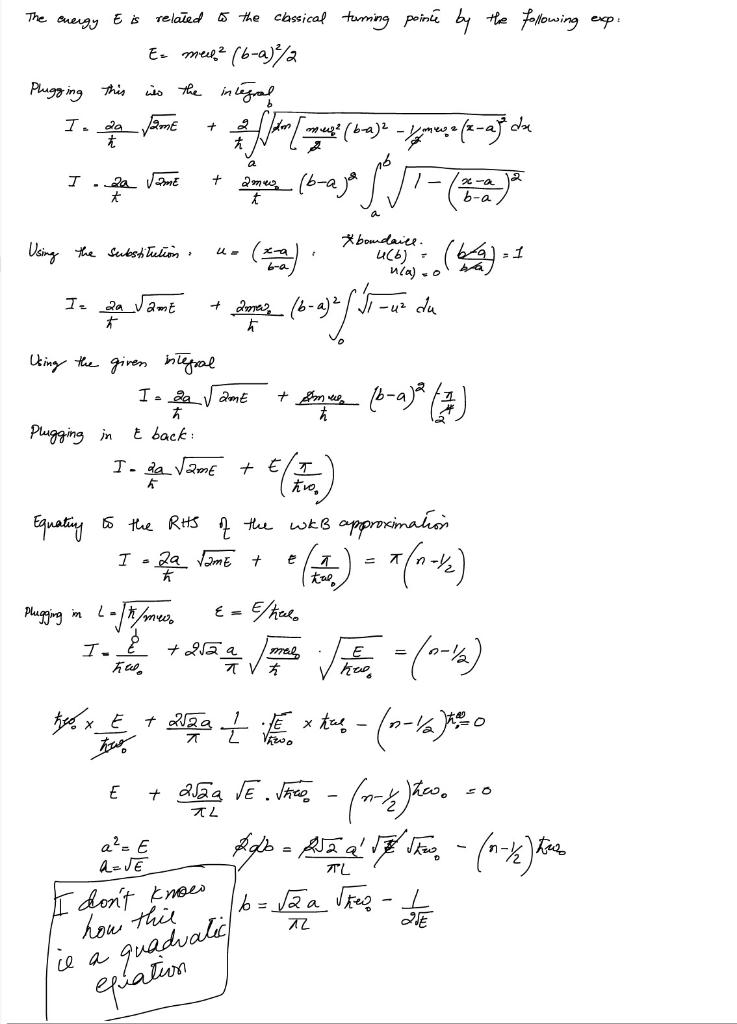 The energy E is related to the classical turning points by the following exp:
E = mω₀² (b-a)²/2
Plugging this into the integral
I = 2a/ħ √2mE + 2/ħ ∫ₐᵇ √2m[mω₀²/2 (b-a)² - 1/2 mω₀² (x-a)²] dx
I = 2a/ħ √2mE + 2mω₀/ħ (b-a)² ∫ₐᵇ √1 - (x-a/b-a)²
Using the substitution, u = (x-a/b-a), *boundaries. u(b) = (b-a/b-a) = 1
u(a) = 0
I = 2a/ħ √2mE + 2mω₀/ħ (b-a)² ∫₀¹ √1-u² du
Using the given integral
I = 2a/ħ √2mE + 2mω₀/ħ (b-a)² (π/4 2)
Plugging in E back:
I = 2a/ħ √2mE + E (π/ħω₀)
Equating to the RHS of the WKB approximation
I = 2a/ħ √2mE + E (π/ħω₀) = π(n-1/2)
Plugging in L = √ħ/mω₀ ε = E/ħω₀
I = E/ħω₀ + 2√2 a/π √mω₀/ħ · √E/ħω₀ = (n-1/2)
ħω₀ x E/ħω₀ + 2√2a/π 1/L · √E/√ħω₀ x ħω₀ - (n-1/2)ħω₀ = 0
E + 2√2a/πL √E · √ħω₀ - (n-1/2)ħω₀ = 0
a² = E
a = √E
2ab = 2√2a/πL √E √ħω₀ - (n-1/2)ħω₀
b = √2a/πL √ħω₀ - 1/2√E
I don't know
how this
is a quadratic
equation